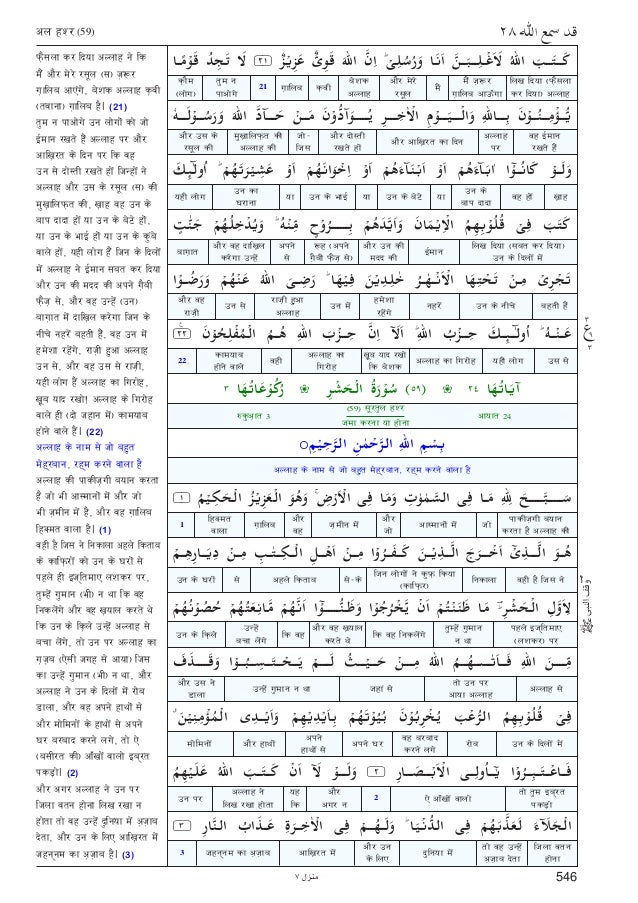 अल हश्र (59)
قد سمع الله ٢٨
फ़ैसला कर दिया अल्लाह ने कि
मैं और मेरे रसूल (स) ज़रूर
ग़ालिब आएंगे, बेशक अल्लाह क़वी
(तवाना) ग़ालिब है। (21)
तुम न पाओगे उन लोगों को जो
ईमान रखते हैं अल्लाह पर और
आख़िरत के दिन पर कि वह
उन से दोस्ती रखते हों जिन्हों ने
अल्लाह और उस के रसूल (स) की
मुख़ालिफ़त की, ख़ाह वह उन के
बाप दादा हों या उन के बेटे हों,
या उन के भाई हों या उन के कुंबे
वाले हों, यही लोग हैं जिन के दिलों
में अल्लाह ने ईमान सबत कर दिया
और उन की मदद की अपने ग़ैबी
फ़ैज़ से, और वह उन्हें (उन)
बाग़ात में दाख़िल करेगा जिन के
नीचे नहरें बहती हैं, वह उन में
हमेशा रहेंगे, राज़ी हुआ अल्लाह
उन से, और वह उस से राज़ी,
यही लोग हैं अल्लाह का गिरोह,
खूब याद रखो! अल्लाह के गिरोह
वाले ही (दो जहान में) कामयाब
होने वाले हैं। (22)
अल्लाह के नाम से जो बहुत
मेह्रबान, रह्म करने वाला है
अल्लाह की पाकीज़गी बयान करता
है जो भी आस्मानों में और जो
भी ज़मीन में है, और वह ग़ालिब
हिक्मत वाला है। (1)
वही है जिस ने निकाला अहले किताब
के काफ़िरों को उन के घरों से
पहले ही इज्तिमाए लशकर पर,
तुम्हें गुमान (भी) न था कि वह
निकलेंगे और वह ख़याल करते थे
कि उन के क़िले उन्हें अल्लाह से
बचा लेंगे, तो उन पर अल्लाह का
ग़ज़ब (ऐसी जगह से आया) जिस
का उन्हें गुमान (भी) न था, और
अल्लाह ने उन के दिलों में रोब
डाला, और वह अपने हाथों से
और मोमिनों के हाथों से अपने
घर बरबाद करने लगे, तो ऐ
(बसीरत की) आँखों वालो! इब्रत
पकड़ो। (2)
और अगर अल्लाह ने उन पर
जिला वतन होना लिख रखा न
होता तो वह उन्हें दुनिया में अज़ाब
देता, और उन के लिए आख़िरत में
जहन्नम का अज़ाब है। (3)
كَتَبَ اللهُ لَاَغْلِبَنَّ اَنَا وَرُسُلِىْ ؕ اِنَّ اللهَ قَوِىٌّ عَزِيْزٌ ﴿٢١﴾ لَا تَجِدُ قَوْمًا
लिख दिया (फ़ैसला कर दिया) अल्लाह | मैं ज़रूर ग़ालिब आऊँगा | मैं | और मेरे रसूल | बेशक अल्लाह | क़वी | ग़ालिब | 21 | तुम न पाओगे | क़ौम (लोग)
يُّؤْمِنُوْنَ بِاللهِ وَالْيَوْمِ الْاٰخِرِ يُوَآدُّوْنَ مَنْ حَآدَّ اللهَ وَرَسُوْلَهٗ
वह ईमान रखते हैं | अल्लाह पर | और आख़िरत का दिन | और दोस्ती रखते हों | जो - जिस | मुख़ालिफ़त की अल्लाह की | और उस के रसूल की
وَلَوْ كَانُوْٓا اٰبَآءَهُمْ اَوْ اَبْنَآءَهُمْ اَوْ اِخْوَانَهُمْ اَوْ عَشِيْرَتَهُمْ ؕ اُولٰٓئِكَ
ख़ाह | वह हों | उन के बाप दादा | या | उन के बेटे | या | उन के भाई | या | उन का घराना | यही लोग
كَتَبَ فِىْ قُلُوْبِهِمُ الْاِيْمَانَ وَاَيَّدَهُمْ بِرُوْحٍ مِّنْهُ ؕ وَيُدْخِلُهُمْ جَنّٰتٍ
लिख दिया (सबत कर दिया) उन के दिलों में | ईमान | और उन की मदद की | रूह (अपने ग़ैबी फ़ैज़ से) | अपने से | और वह दाख़िल करेगा उन्हें | बाग़ात
تَجْرِىْ مِنْ تَحْتِهَا الْاَنْهٰرُ خٰلِدِيْنَ فِيْهَا ؕ رَضِىَ اللهُ عَنْهُمْ وَرَضُوْا
बहती हैं | उन के नीचे | नहरें | हमेशा रहेंगे | उन में | राज़ी हुआ अल्लाह | उन से | और वह राज़ी
عَنْهُ ؕ اُولٰٓئِكَ حِزْبُ اللهِ ؕ اَلَآ اِنَّ حِزْبَ اللهِ هُمُ الْمُفْلِحُوْنَ ﴿٢٢﴾
उस से | यही लोग | अल्लाह का गिरोह | खूब याद रखो कि बेशक | अल्लाह का गिरोह | वही | कामयाब होने वाले | 22
اٰيَاتُهَا ٢٤ ❀ (٥٩) سُوْرَةُ الْحَشْرِ ❀ رُكُوْعَاتُهَا ٣
आयात 24 | (59) सूरतुल हश्र जमा करना या होना | रुकुआ़त 3
بِسْمِ اللهِ الرَّحْمٰنِ الرَّحِيْمِ ○
अल्लाह के नाम से जो बहुत मेह्रबान, रह्म करने वाला है
سَبَّحَ لِلّٰهِ مَا فِى السَّمٰوٰتِ وَمَا فِى الْاَرْضِ ۚ وَهُوَ الْعَزِيْزُ الْحَكِيْمُ ﴿١﴾
पाकीज़गी बयान करता है अल्लाह की | जो | आस्मानों में | और जो | ज़मीन में | और वह | ग़ालिब | हिक्मत वाला | 1
هُوَ الَّذِىْٓ اَخْرَجَ الَّذِيْنَ كَفَرُوْا مِنْ اَهْلِ الْكِتٰبِ مِنْ دِيَارِهِمْ
वही है जिस ने | निकाला | जिन लोगों ने कुफ़्र किया (काफ़िर) | से-के | अहले किताब | से | उन के घरों
لِاَوَّلِ الْحَشْرِ ؔ مَا ظَنَنْتُمْ اَنْ يَّخْرُجُوْا وَظَنُّوْٓا اَنَّهُمْ مَّانِعَتُهُمْ حُصُوْنُهُمْ
पहले इज्तिमाए (लशकर) पर | तुम्हें गुमान न था | कि वह निकलेंगे | और वह ख़याल करते थे | कि वह | उन्हें बचा लेंगे | उन के क़िले
مِّنَ اللهِ فَاَتٰىهُمُ اللهُ مِنْ حَيْثُ لَمْ يَحْتَسِبُوْا وَقَذَفَ
अल्लाह से | तो उन पर आया अल्लाह | जहां से | उन्हें गुमान न था | और उस ने डाला
فِىْ قُلُوْبِهِمُ الرُّعْبَ يُخْرِبُوْنَ بُيُوْتَهُمْ بِاَيْدِيْهِمْ وَاَيْدِى الْمُؤْمِنِيْنَ ۙ
उन के दिलों में | रोब | वह बरबाद करने लगे | अपने घर | अपने हाथों से | और हाथों | मोमिनों
فَاعْتَبِرُوْا يٰٓاُولِى الْاَبْصَارِ ﴿٢﴾ وَلَوْ لَآ اَنْ كَتَبَ اللهُ عَلَيْهِمُ
तो तुम इब्रत पकड़ो | ऐ आँखों वालो | 2 | और अगर न | यह कि | अल्लाह ने लिख रखा होता | उन पर
الْجَلَآءَ لَعَذَّبَهُمْ فِى الدُّنْيَا ؕ وَلَهُمْ فِى الْاٰخِرَةِ عَذَابُ النَّارِ ﴿٣﴾
जिला वतन होना | तो वह उन्हें अज़ाब देता | दुनिया में | और उन के लिए | आख़िरत में | जहन्नम का अज़ाब | 3
٣
ع
٢
وقف النبى ﷺ
منزل ٧
546